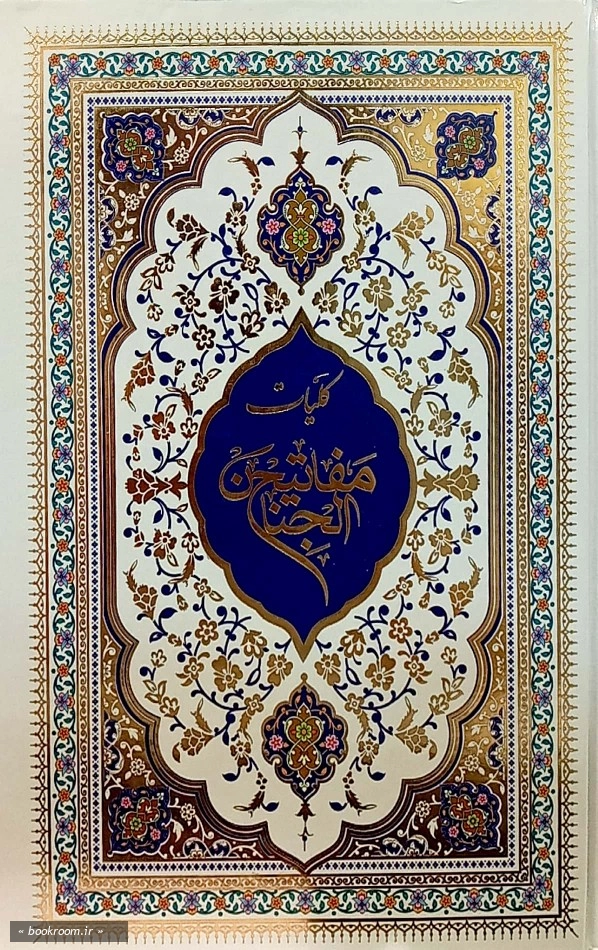 کلیات
مفاتیح
الجنان
« bookroom.ir »